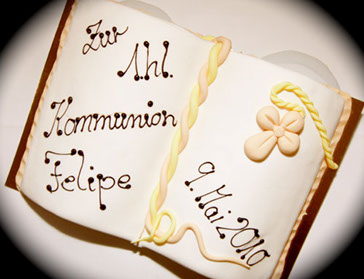 Zur
1hl.
Kommunion
Felipe
9. Mai 2010